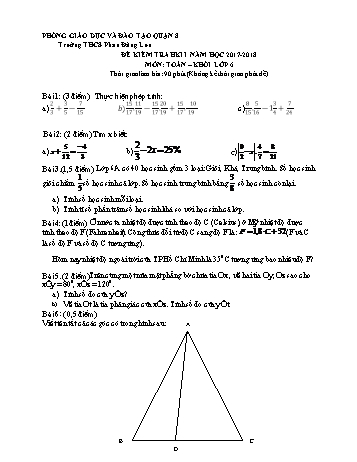 PHÒNG GIÁO DỤC VÀ ĐÀO TẠO QUẬN 8
Trường THCS Phan Đăng Lưu
ĐỀ KIỂM TRA HKII NĂM HỌC 2017-2018
MÔN: TOÁN – KHỐI LỚP 6
Thời gian làm bài: 90 phút (Không kể thời gian phát đề)
Bài 1: (3 điểm) Thực hiện phép tính:
a) 2/3 + 3/5 - 7/15 b) 15/17 . 11/19 - 15/17 . 20/19 + 15/17 . 10/19 c) 8/15 . 5/16 - 1 3/4 + 7/24
Bài 2: (2 điểm) Tìm x biết:
a) x + 5/12 = -4/3 b) 2/3 - 2x = 25% c)
Bài 3: (1,5 điểm) Lớp 6A có 40 học sinh gồm 3 loại: Giỏi, Khá, Trung bình. Số học sinh
giỏi chiếm 1/5 số học sinh cả lớp. Số học sinh trung bình bằng 3/8 số học sinh còn lại.
a) Tính số học sinh mỗi loại.
b) Tính tỉ số phần trăm số học sinh khá so với học sinh cả lớp.
Bài 4: (1 điểm) Ở nước ta nhiệt độ được tính theo độ C (Celsius) ở Mỹ nhiệt độ được
tính theo độ F (Fahrenheit). Công thức đổi từ độ C sang độ F là: F = 1,8 . C + 32 (F và C
là số độ F và số độ C tương ứng).
Hôm nay nhiệt độ ngoài trời của TPHồ Chí Minh là 35°C tương ứng bao nhiêu độ F?
Bài 5: (2 điểm) Trên cùng một nửa mặt phẳng bờ chứa tia Ox, vẽ hai tia Oy; Oz sao cho
xÔy = 80°, xÔz = 120°.
a) Tính số đo của yÔz?
b) Vẽ tia Ot là tia phân giác của xÔz. Tính số đo của yÔt
Bài 6: (0,5 điểm)
Viết tên tất cả các góc có trong hình sau:
A
B
C
D